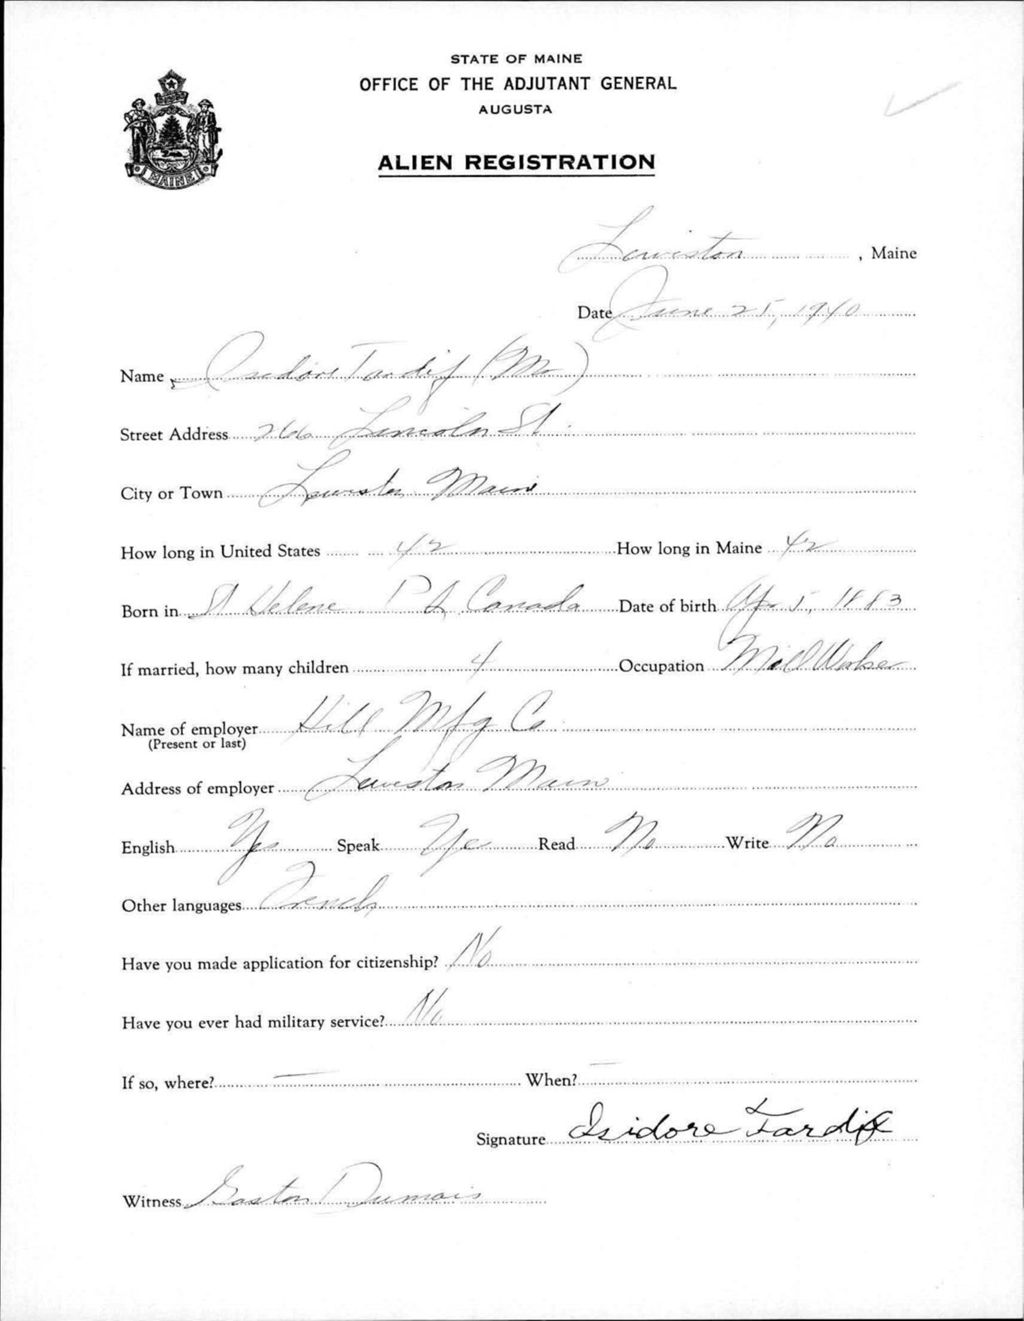 STATE OF MAINE
OFFICE OF THE ADJUTANT GENERAL
AUGUSTA
MAINE
ALIEN REGISTRATION
Lewiston, Maine
Date June 25, 1940
Name Isidore Tardif (Mr)
Street Address 266 Lincoln St.
City or Town Lewiston Maine
How long in United States 42 How long in Maine 42
Born in St Helene P Q Canada Date of birth Ap 5, 1883
If married, how many children 4 Occupation Mill Worker
Name of employer Hill Mfg Co.
(Present or last)
Address of employer Lewiston Maine
English Yes Speak Yes Read No Write No
Other languages French
Have you made application for citizenship? No
Have you ever had military service? No
If so, where? — When? —
Signature Isidore Tardif
Witness Gaston Dumais